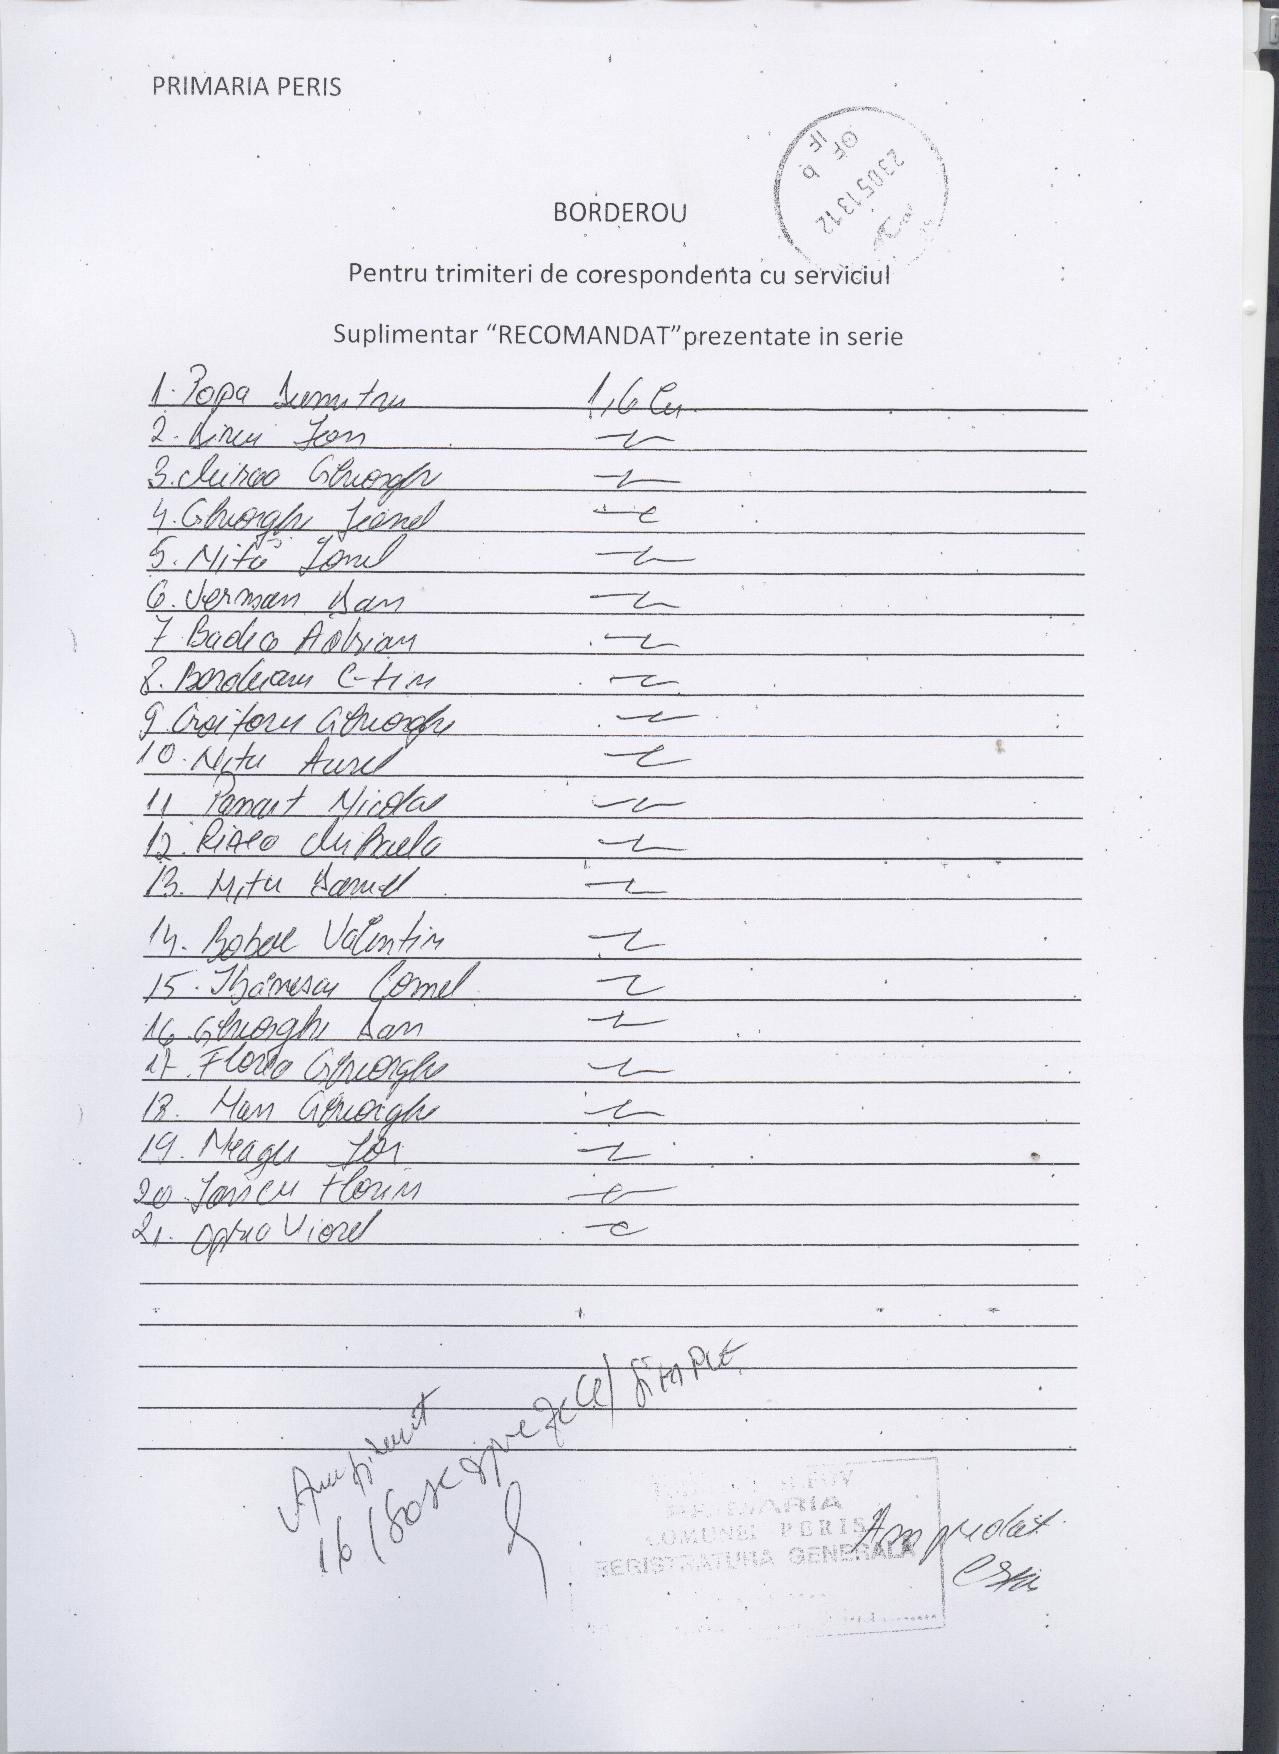 PRIMARIA PERIS
OF
IF
230513 12
BORDEROU
Pentru trimiteri de corespondenta cu serviciul
Suplimentar “RECOMANDAT”prezentate in serie
1. Popa Dumitru 1,6
2. Ion
3. Mircea Gheorghe
4. Gheorghe Ionel
5. Nită Ionel
6. Dan
7 Badea Adrian
8. Bordeianu C-tin
9. Croitoru Gheorghe
10. Nitu Aurel
11 Panait Nicolae
12. Mihaela
13. Nitu Daniel
14. Valentin
15. Cornel
16. Gheorghe Dan
17. Florea Gheorghe
18. Man Gheorghe
19. Neagu Ion
20. Iancu Florin
21. Oprea Viorel
Am primit
16 / SIMPLE
PRIMARIA
COMUNEI PERIS
REGISTRATURA GENERALA
Am predat